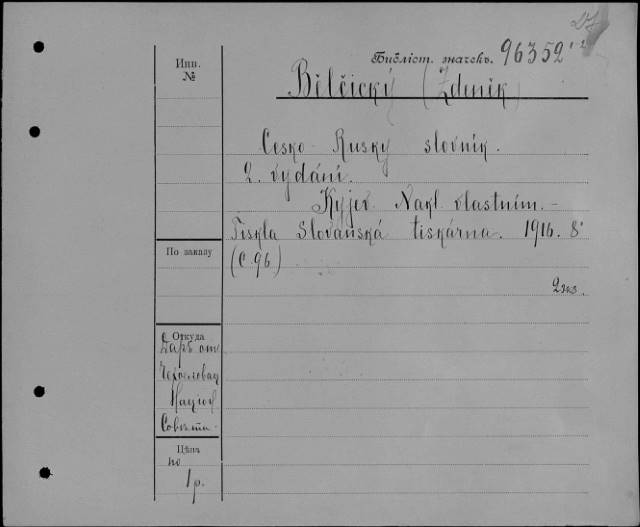 Инв.
№
Библіот. значекъ. 96352
Bělčický (Zdeněk)
Česko-Ruský slovník.
2. vydání.
Kyjev. Nákl. vlastním. –
Tiskla Slovanská tiskárna. 1916. 8°
(C. 96.)
2 экз.
По заказу
Откуда
Даръ от
Чехословац
Націон
Совѣта.
Цѣна
по
1 р.